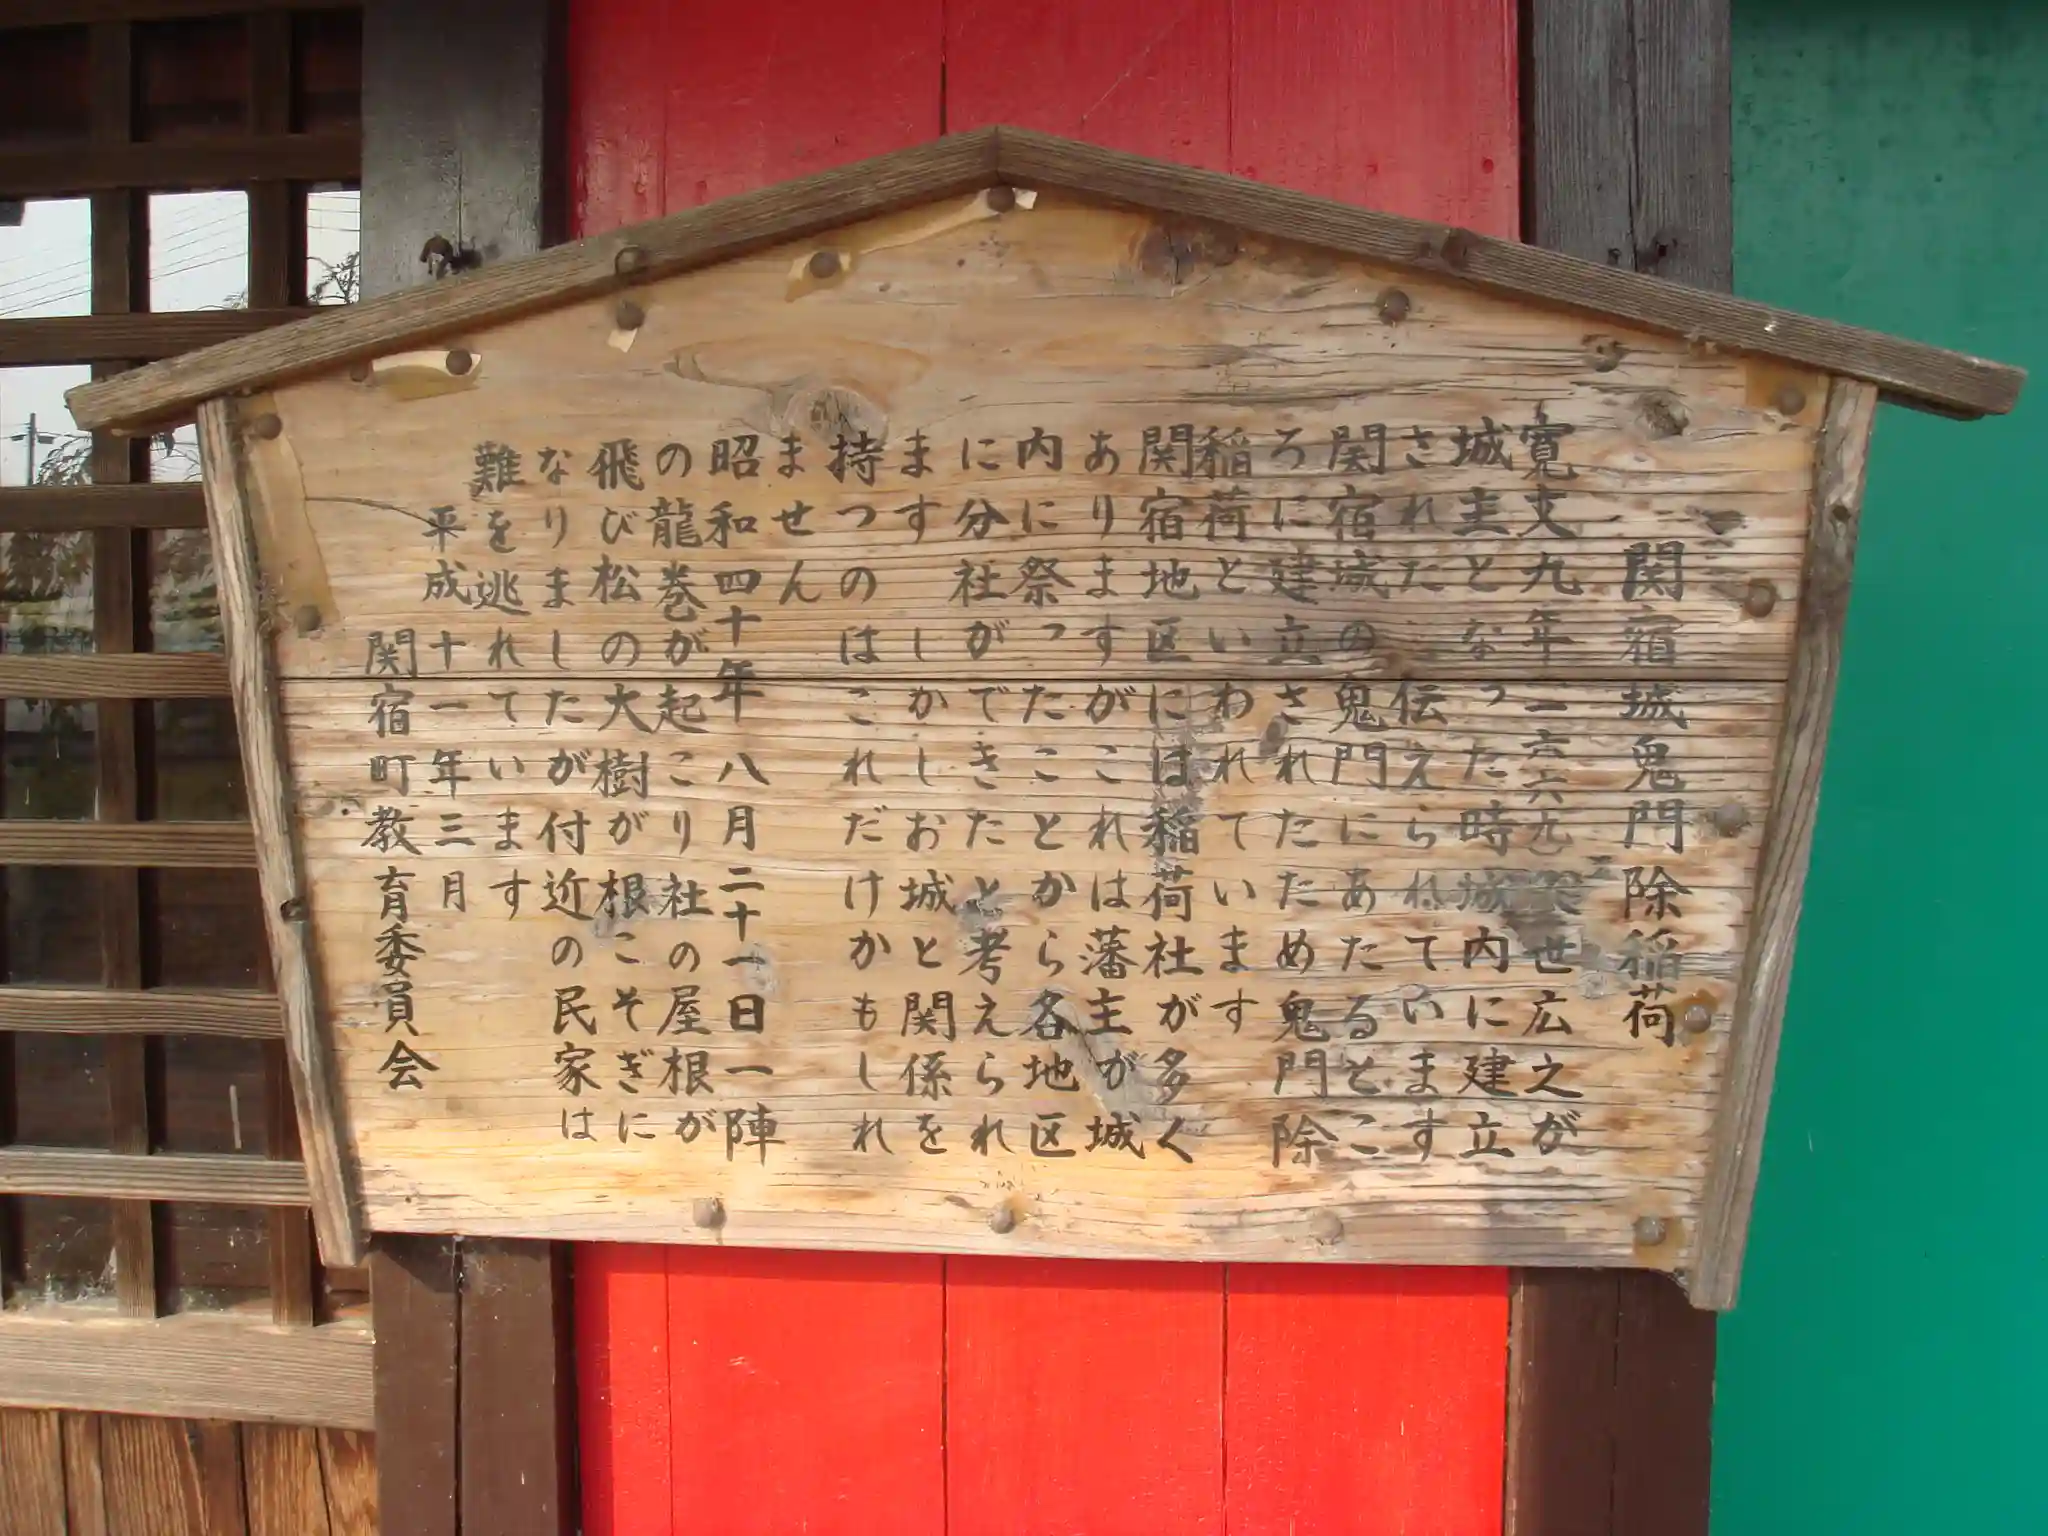 関宿城鬼門除稲荷
寛文九年(一六六九)久世広之が
城主となった時城内に建立
された 伝えられています
関宿城の鬼門にあたるとこ
ろに建立されたため鬼門除
稲荷といわれています
関宿地区には稲荷社が多く
ありますがこれは藩主が城
内に祭ったことから各地区
に分社ができたと考えられ
ます しかしお城と関係を
持つのはこれだけかもしれ
ません
昭和四十年八月二十一日一陣
の龍巻が起こり社の屋根が
飛び松の大樹が根こそぎに
なりましたが付近の民家は
難を逃れています
平成十一年三月
関宿町教育委員会